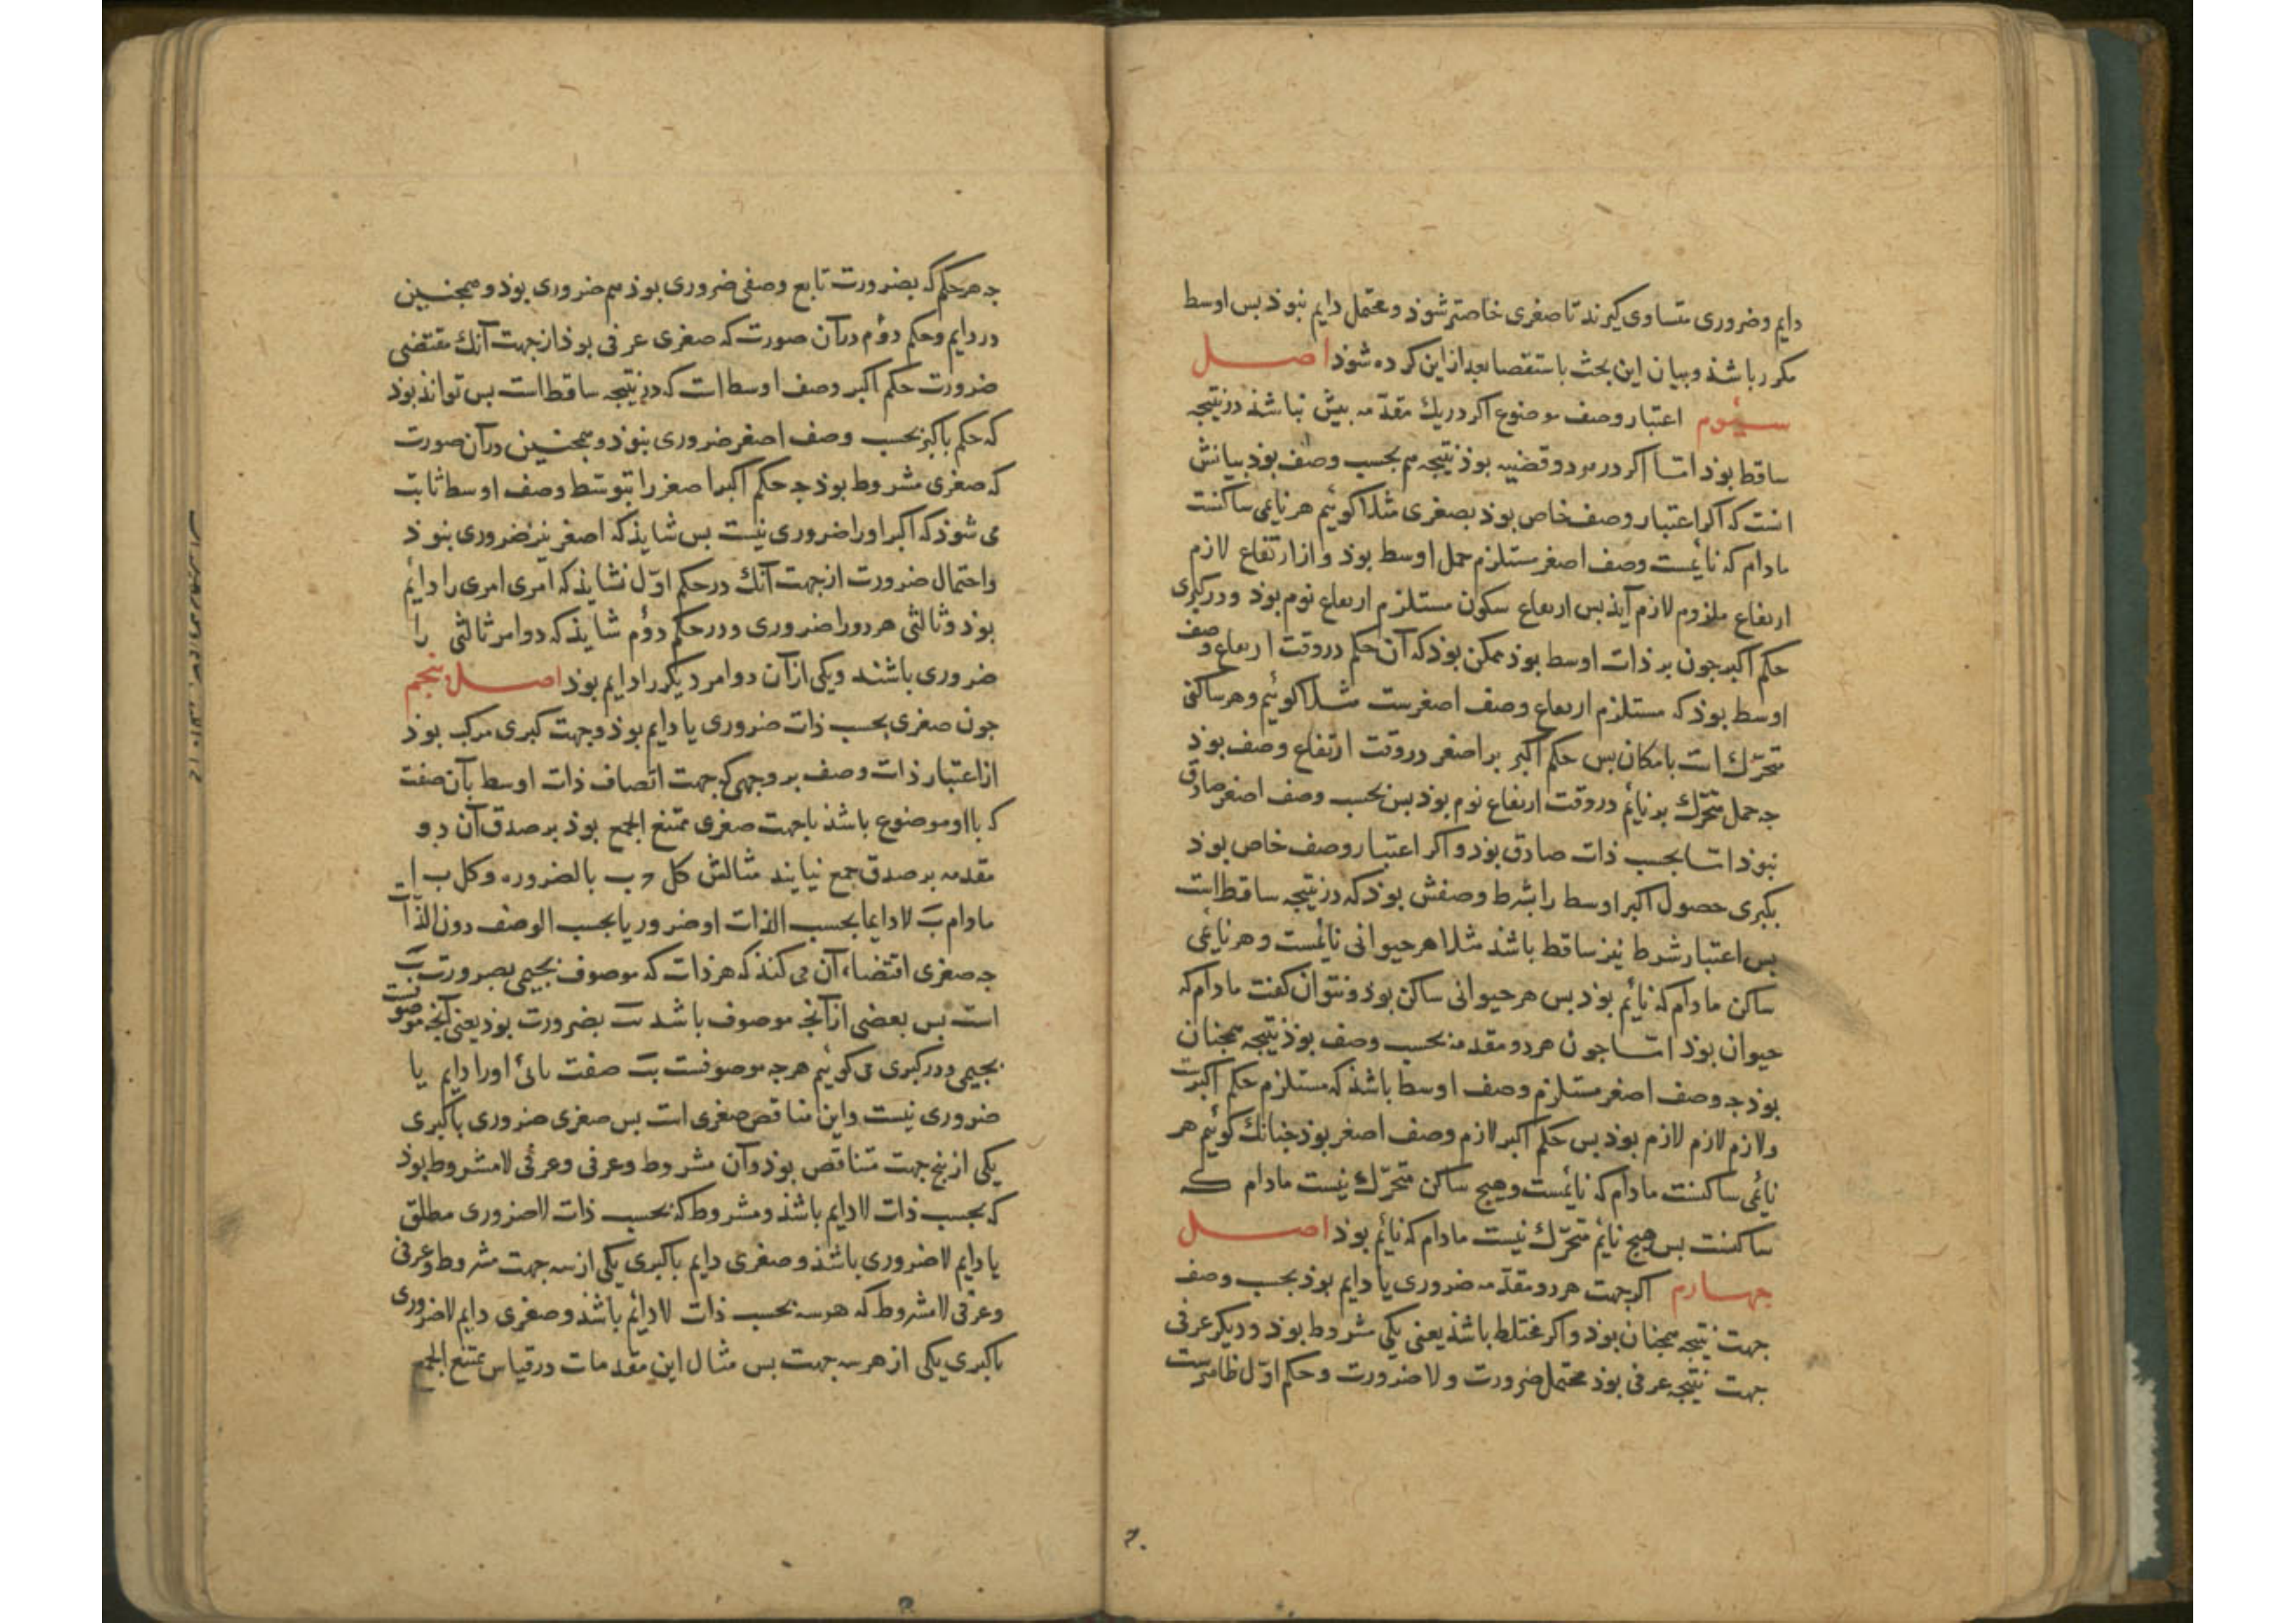 دایم و ضروری متساوی کیرند تا صغری خاصتر شوذ و محتمل دایم نبوذ بس اوسط
مکرر باشذ و بیان این بحث باستقصا بعد از این کرده شوذ اصل
سیوم اعتبار وصف موضوع اکر در یك مقدمه بیش نباشذ در نتیجه
ساقط بوذ اما اکر در هر دو قضیه بوذ نتیجه هم بحسب وصف بوذ بیانش
انست که اکر اعتبار وصف خاص بوذ بصغری مثلا کوئیم هر نایمی ساکنست
مادام که نایمست وصف اصغر مستلزم حمل اوسط بوذ و از ارتفاع لازم
ارتفاع ملزوم لازم آیذ بس ارتفاع سکون مستلزم ارتفاع نوم بوذ و در کبری
حکم اکبر جون بر ذات اوسط بوذ ممکن بوذ که آن حکم در وقت ارتفاع وصف
اوسط بوذ که مستلزم ارتفاع وصف اصغرست مثلا کوئیم و هر ساکنی
متحرّك است بامکان بس حکم اکبر بر اصغر در وقت ارتفاع وصف بوذ
جه حمل متحرّك بر نائم در وقت ارتفاع نوم بوذ بس بحسب وصف اصغر صادق
نبوذ اما بحسب ذات صادق بوذ و اکر اعتبار وصف خاص بوذ
بکبری حصول اکبر اوسط را بشرط وصفش بوذ که در نتیجه ساقط است
بس اعتبار شرط نیز ساقط باشذ مثلا هر حیوانی نائمست و هر نایمی
ساکن مادام که نائم بوذ بس هر حیوانی ساکن بوذ و نتوان کفت مادام که
حیوان بوذ اما جون هر دو مقدمه بحسب وصف بوذ نتیجه همجنان
بوذ جه وصف اصغر مستلزم وصف اوسط باشذ که مستلزم حکم اکبرست
و لازم لازم لازم بوذ بس حکم اکبر لازم وصف اصغر بوذ جنانك کوئیم هر
نائمی ساکنست مادام که نائمست و هیج ساکن متحرّك نیست مادام که
ساکنست بس هیج نائم متحرّك نیست مادام که نائم بوذ اصل
جهارم اکر جهت هر دو مقدّمه ضروری یا دایم بوذ بحسب وصف
جهت نتیجه همجنان بوذ و اکر مختلط باشذ یعنی یکی مشروط بوذ و دیکر عرفی
جهت نتیجه عرفی بوذ محتمل ضرورت و لا ضرورت و حکم اوّل ظاهرست
جه هر حکم که بضرورت تابع وصفی ضروری بوذ هم ضروری بوذ و همجنین
در دایم و حکم دوّم در آن صورت که صغری عرفی بوذ از جهت آنك مقتضی
ضرورت حکم اکبر وصف اوسط است که در نتیجه ساقط است بس تواند بوذ
که حکم باکبر بحسب وصف اصغر ضروری نبوذ و همجنین در آن صورت
که صغری مشروط بوذ جه حکم اکبر اصغر را بتوسّط وصف اوسط ثابت
می شوذ که اکبر او را ضروری نیست بس شایذ که اصغر نیز ضروری نبوذ
و احتمال ضرورت از جهت آنك در حکم اوّل نشایذ که امری امری را دایم
بوذ و ثالثی هر دو را ضروری و در حکم دوّم شایذ که دو امر ثالثی را
ضروری باشند و یکی از آن دو امر دیکر را دایم بوذ اصل بنجم
جون صغری بحسب ذات ضروری یا دایم بوذ و جهت کبری مرکب بوذ
از اعتبار ذات و صف بر وجهی که جهت اتصاف ذات اوسط بآن صفت
که با او موضوع باشذ با جهت صغری ممتنع الجمع بوذ بر صدق آن دو
مقدمه بر صدق جمع نیایند مثالش کل ج ب بالضروره و کل ب ا
مادام ب لا دایما بحسب الذات او ضروریا بحسب الوصف دون الذات
جه صغری اقتضاء آن می کنذ که هر ذات که موصوف بجیمی بصرورت ب
است بس بعضی از آنجه موصوف باشد ب بضرورت بوذ یعنی آنجه موصوفست
بجیمی و در کبری می کوئیم هر جه موصوفست ب صفت بائی او را دایم یا
ضروری نیست و این مناقض صغری است بس صغری ضروری با کبری
یکی از بنج جهت متناقض بوذ و آن مشروط و عرفی و عرفی لا مشروط بوذ
که بحسب ذات لا دایم باشذ و مشروط که بحسب ذات لا ضروری مطلق
یا دایم لا ضروری باشذ و صغری دایم با کبری یکی از سه جهت مشروط و عرفی
و عرفی لا مشروط که هر سه بحسب ذات لا دائم باشذ و صغری دایم لا ضروری
با کبری یکی از هر سه جهت بس مثال این مقدمات در قیاس ممتنع الجمع